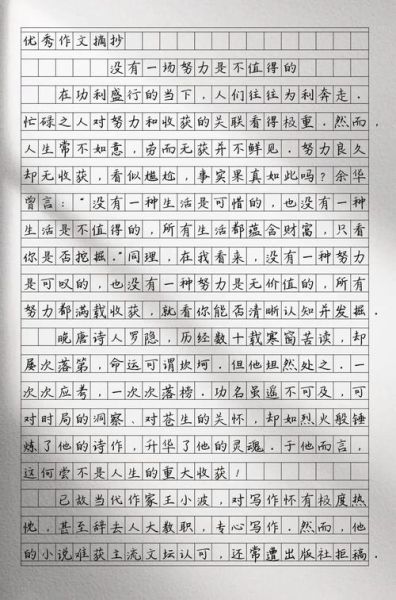 优秀作文摘抄
没有一场努力是不值得的
在功利盛行的当下．人们往往为利奔走．
忙碌之人对努力和收获的关联看得极重．然而．
人生常不如意，劳而无获并不鲜见．努力良久
却无收获，看似尴尬，事实果真如此吗？余华
曾言：“没有一种生活是可惜的，也没有一种
生活是不值得的，所有生活都蕴含财富，只看
你是否挖掘．”同理，在我看来，没有一种努力
是可叹的，也没有一种努力是无价值的，所有
努力都满载收获，就看你能否清晰认知并发掘．
晚唐诗人罗隐，历经数十载寒窗苦读，却
屡次落第，命运可谓坎坷．但他坦然处之．一
次次应考，一次次落榜．功名虽遥不可及，可
对时局的洞察、对苍生的关怀，却如烈火般锤
炼了他的诗作，升华了他的灵魂．于他而言，
这何尝不是人生的重大收获！
已故当代作家王小波，对写作怀有极度热
忱，甚至辞去人大教职，专心写作．然而，他
的小说难获主流文坛认可，还常遭出版社拒稿．